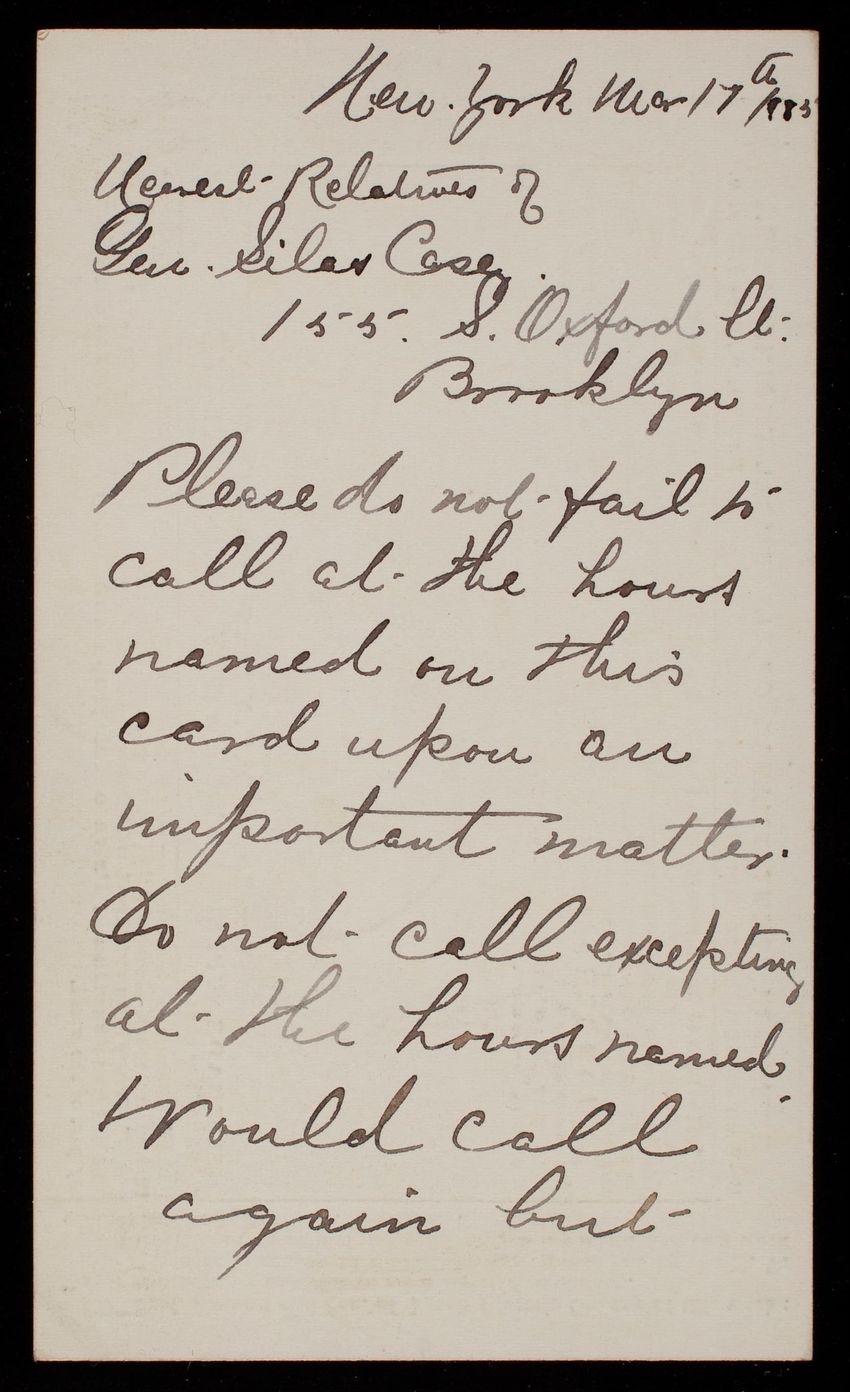 New. York Mar 17th /885
Nearest Relatives of
Gen. Silas Casey.
155. S. Oxford St.
Brooklyn
Please do not fail to
call at the hours
named on this
card upon an
important matter.
Do not call excepting
at the hours named.
Would call
again but